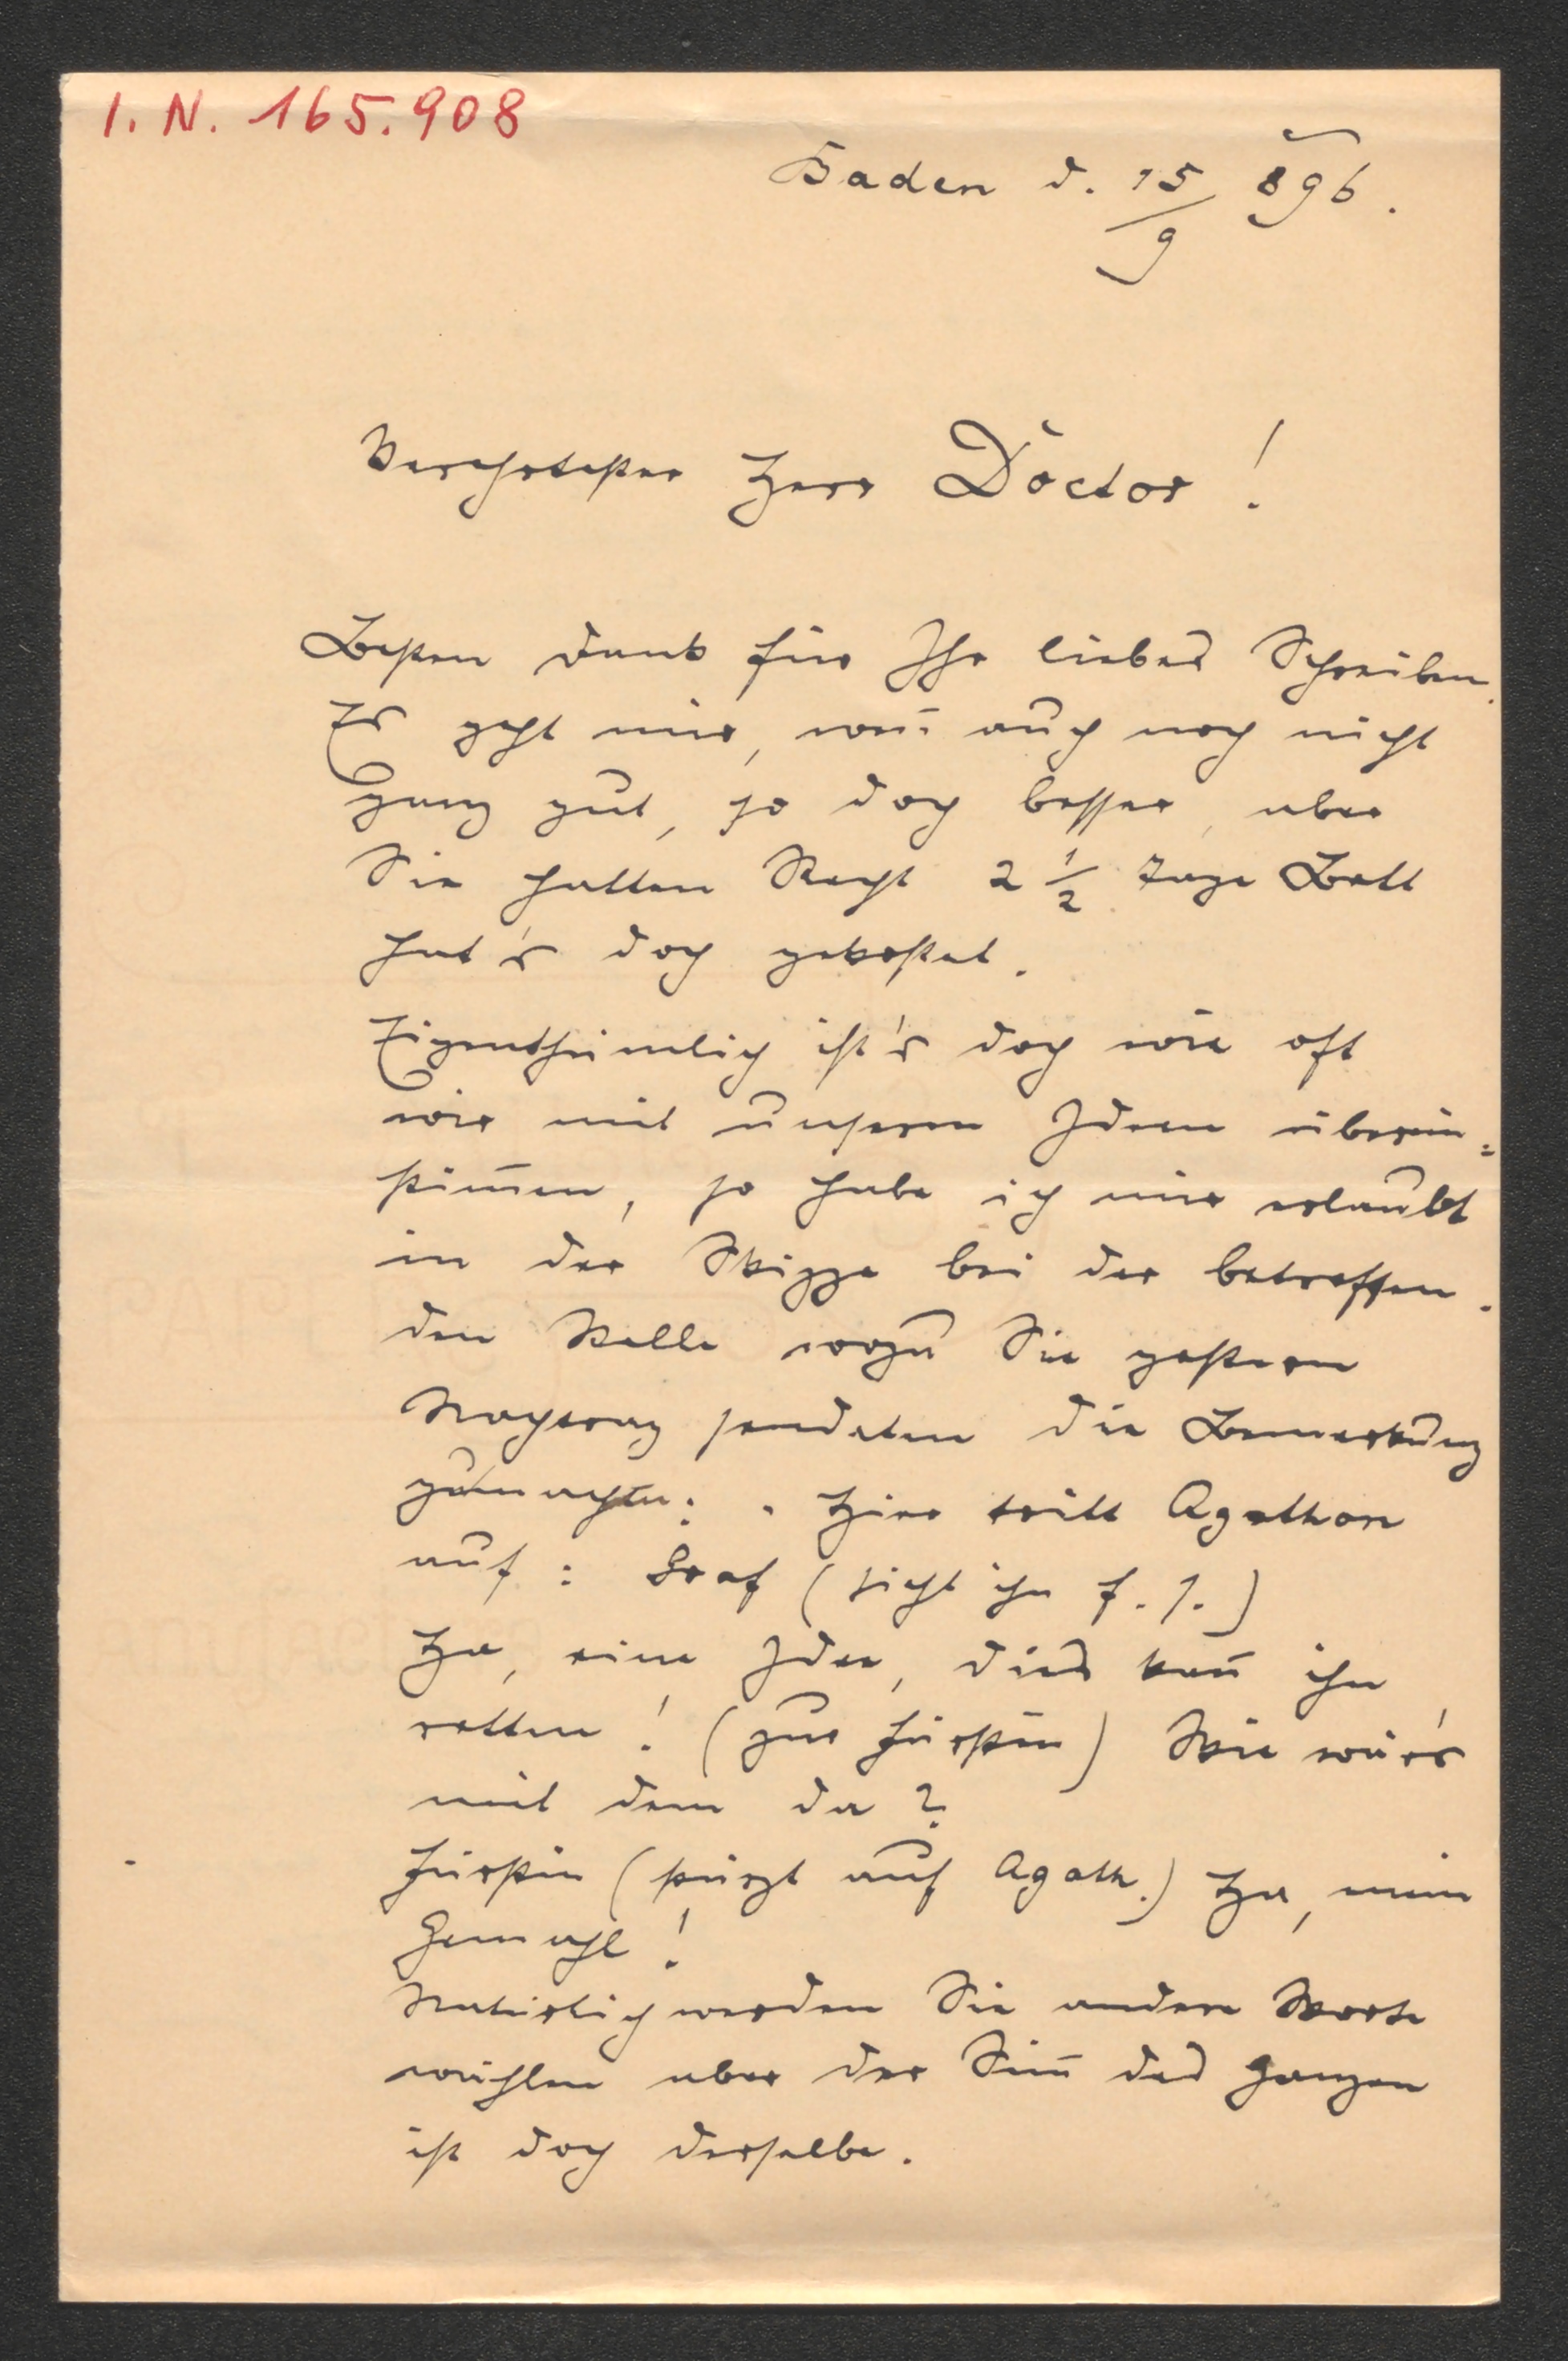 I. N. 165.908
Baden d. 15/9 896.
Verehrtester Herr Doctor!
Besten Dank für Ihr liebes Schreiben.
Es geht mir, weñ auch noch nicht
ganz gut, so doch besser, aber
Sie hatten Recht 2 1/2 Tage Bett
hat's doch gekostet.
Eigenthümlich ist's doch wie oft
wir mit unseren Ideen überein=
stim̄en, so habe ich mir erlaubt
in der Skizze bei der betreffen-
den Stelle wozu Sie gestern
Nachtrag sendeten die Bemerkung
zumachen: " Hier tritt Agathon
auf: Graf (sieht ihn f. s.)
Ha, eine Idee, dies kañ ihn
retten! (zur Fürstin) Wie wär's
mit dem da?
Fürstin (stürzt auf Agath.) Ha, mein
Gemahl!
Natürlich werden Sie andere Worte
wählen aber der Siñ des Ganzen
ist doch derselbe.